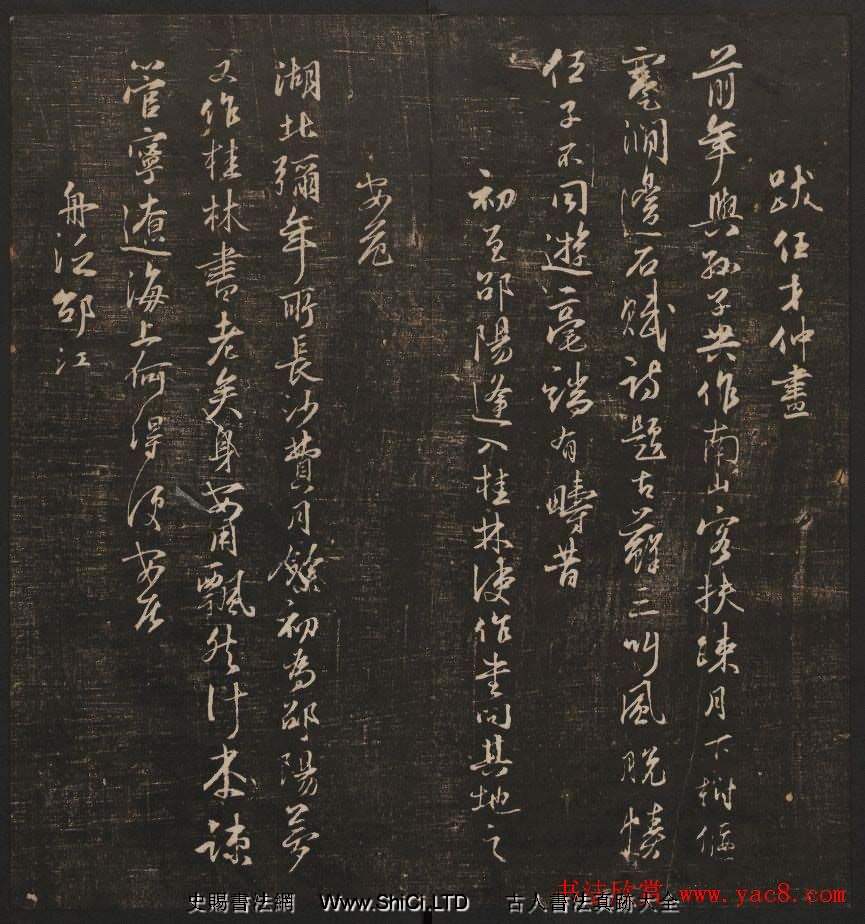 跋任才仲畫
前年與孫子共作南山客扶疎月下樹偃
蹇澗邊石賦詩題古蘚三叫風脫幘
任子不同遊毫端有疇昔
初至邵陽逢入桂林使作書問其地之
安危
湖北彌年所長沙費月餘初為邵陽夢
又作桂林書老矣身安用飄然計本疎
管寧遼海上何得便安居
舟泛邵江
史賜書法網 Www.ShiCi.LTD 古人書法真跡大全
书法欣赏 www.yac8.com